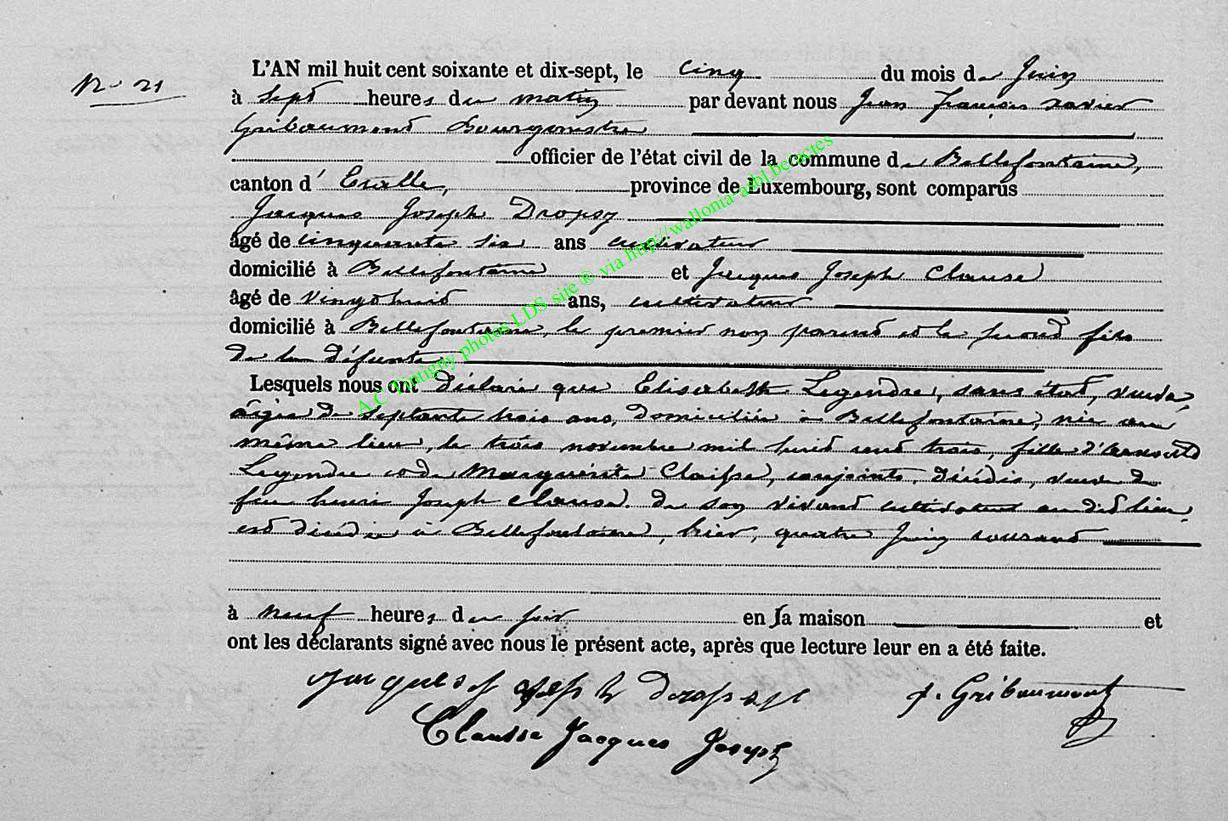 N° 21
L'AN mil huit cent soixante et dix-sept, le cinq du mois de Juin
à sept heures du matin par devant nous Jean François Xavier
Gribaumont Bourgmestre
officier de l'état civil de la commune de Bellefontaine,
canton d'Etalle, province de Luxembourg, sont comparus
Jacques Joseph Dropsy
âgé de cinquante six ans cultivateur
domicilié à Bellefontaine et Jacques Joseph Clausse
âgé de vingt huit ans, cultivateur
domicilié à Bellefontaine, le premier non parent et le second fils
de la défunte
Lesquels nous ont déclaré que Elisabeth Legendre, sans état, veuve,
âgée de septante trois ans, domiciliée à Bellefontaine, née au
même lieu, le trois novembre mil huit cent trois, fille d'
Legendre et de Marguerite Claisse, conjoints, décédés, veuve de
feu henri Joseph Clausse de son vivant cultivateur au dit lieu,
est décédée à Bellefontaine, hier, quatre Juin courant
à neuf heures du soir en sa maison et
ont les déclarants signé avec nous le présent acte, après que lecture leur en a été faite.
jacques joseph dropsy f. Gribaumont
Clausse Jacques Joseph
A.C. Tintigny photos LDS site © via http://wallonia-asbl.be/actes